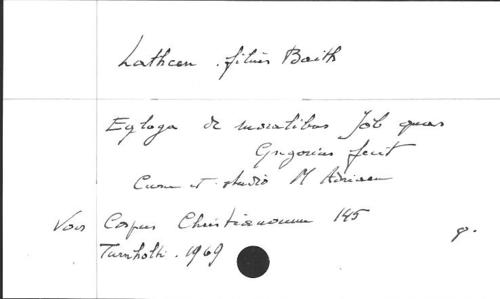 Lathcen . filius Baith
Egloga de moralibus Job quas
Gregorius fecit
Cura et studio M Adriaen
Voir Corpus Christianorum 145
Turnholti . 1969